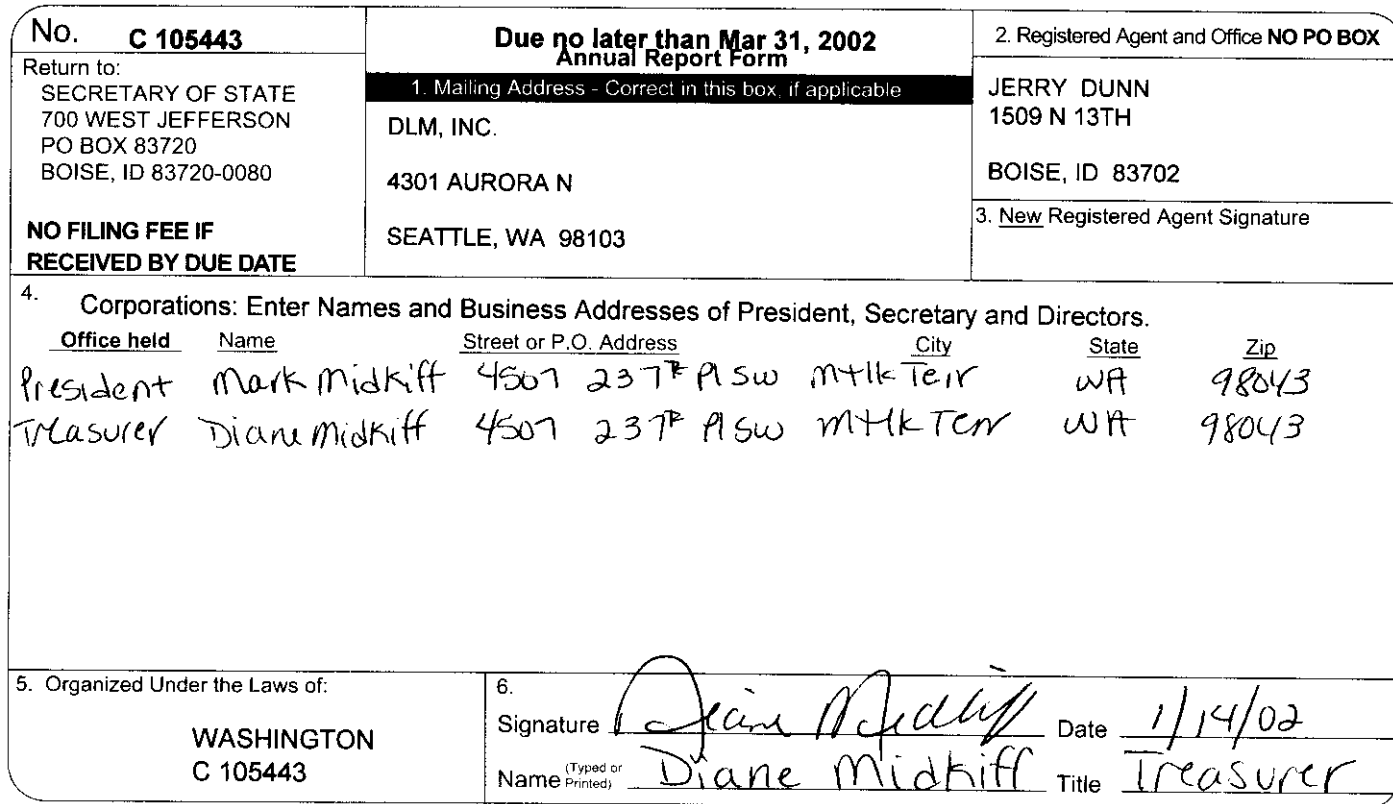 No. C 105443
Return to:
SECRETARY OF STATE
700 WEST JEFFERSON
PO BOX 83720
BOISE, ID 83720-0080
NO FILING FEE IF
RECEIVED BY DUE DATE
Due no later than Mar 31, 2002
Annual Report Form
1. Mailing Address - Correct in this box, if applicable
DLM, INC.
4301 AURORA N
SEATTLE, WA 98103
2. Registered Agent and Office NO PO BOX
JERRY DUNN
1509 N 13TH
BOISE, ID 83702
3. New Registered Agent Signature
4. Corporations: Enter Names and Business Addresses of President, Secretary and Directors.
Office held Name Street or P.O. Address City State Zip
President Mark Midkiff 4507 237th Pl SW Mtlk Terr WA 98043
Treasurer Diane Midkiff 4507 237th Pl SW Mtlk Terr WA 98043
5. Organized Under the Laws of:
WASHINGTON
C 105443
6.
Signature Diane Midkiff Date 1/14/02
Name (Typed or Printed) Diane Midkiff Title Treasurer